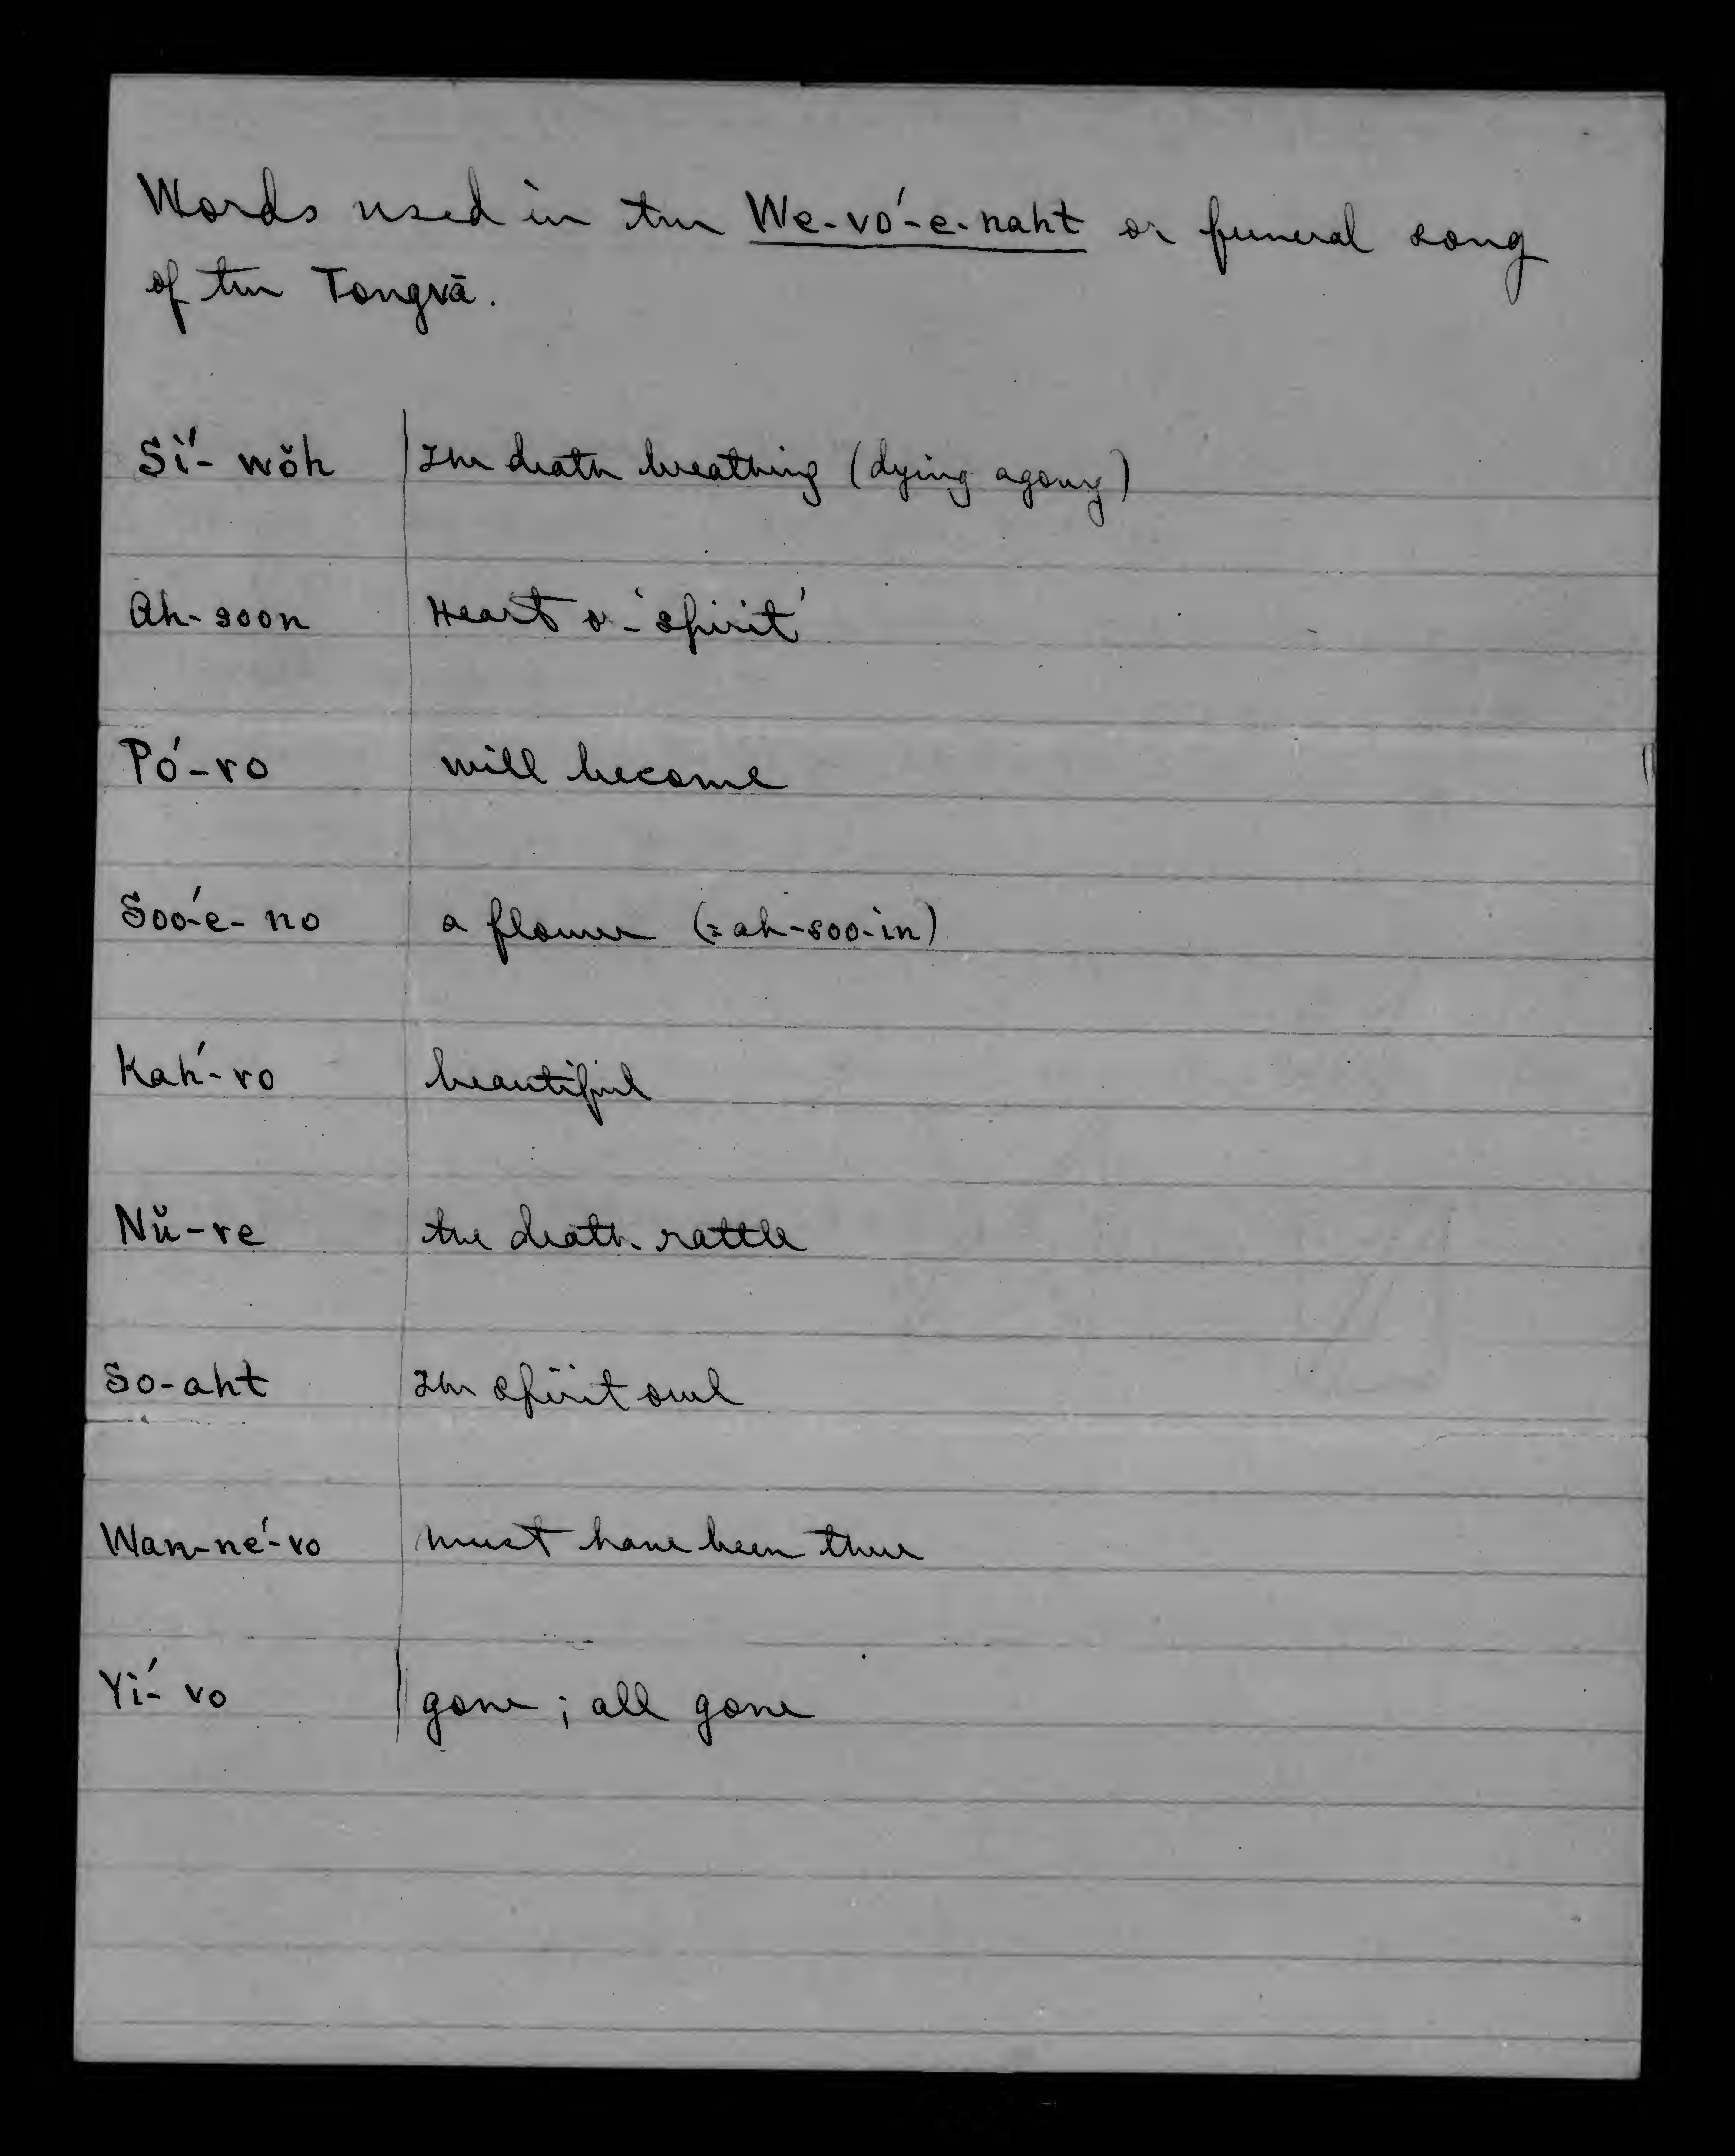 Words used in the We-vó-e-naht or funeral song
of the Tongvā.
Sí-wŏh The death breathing (dying agony)
Ah-soon Heart or 'spirit'
Pó-ro will become
Soó-e-no a flower (=ah-soo-in)
Kah́-ro beautiful
Nŭ-re the death-rattle
So-aht The spirit owl
Wan-né-ro must have been there
Yí-vo gone; all gone